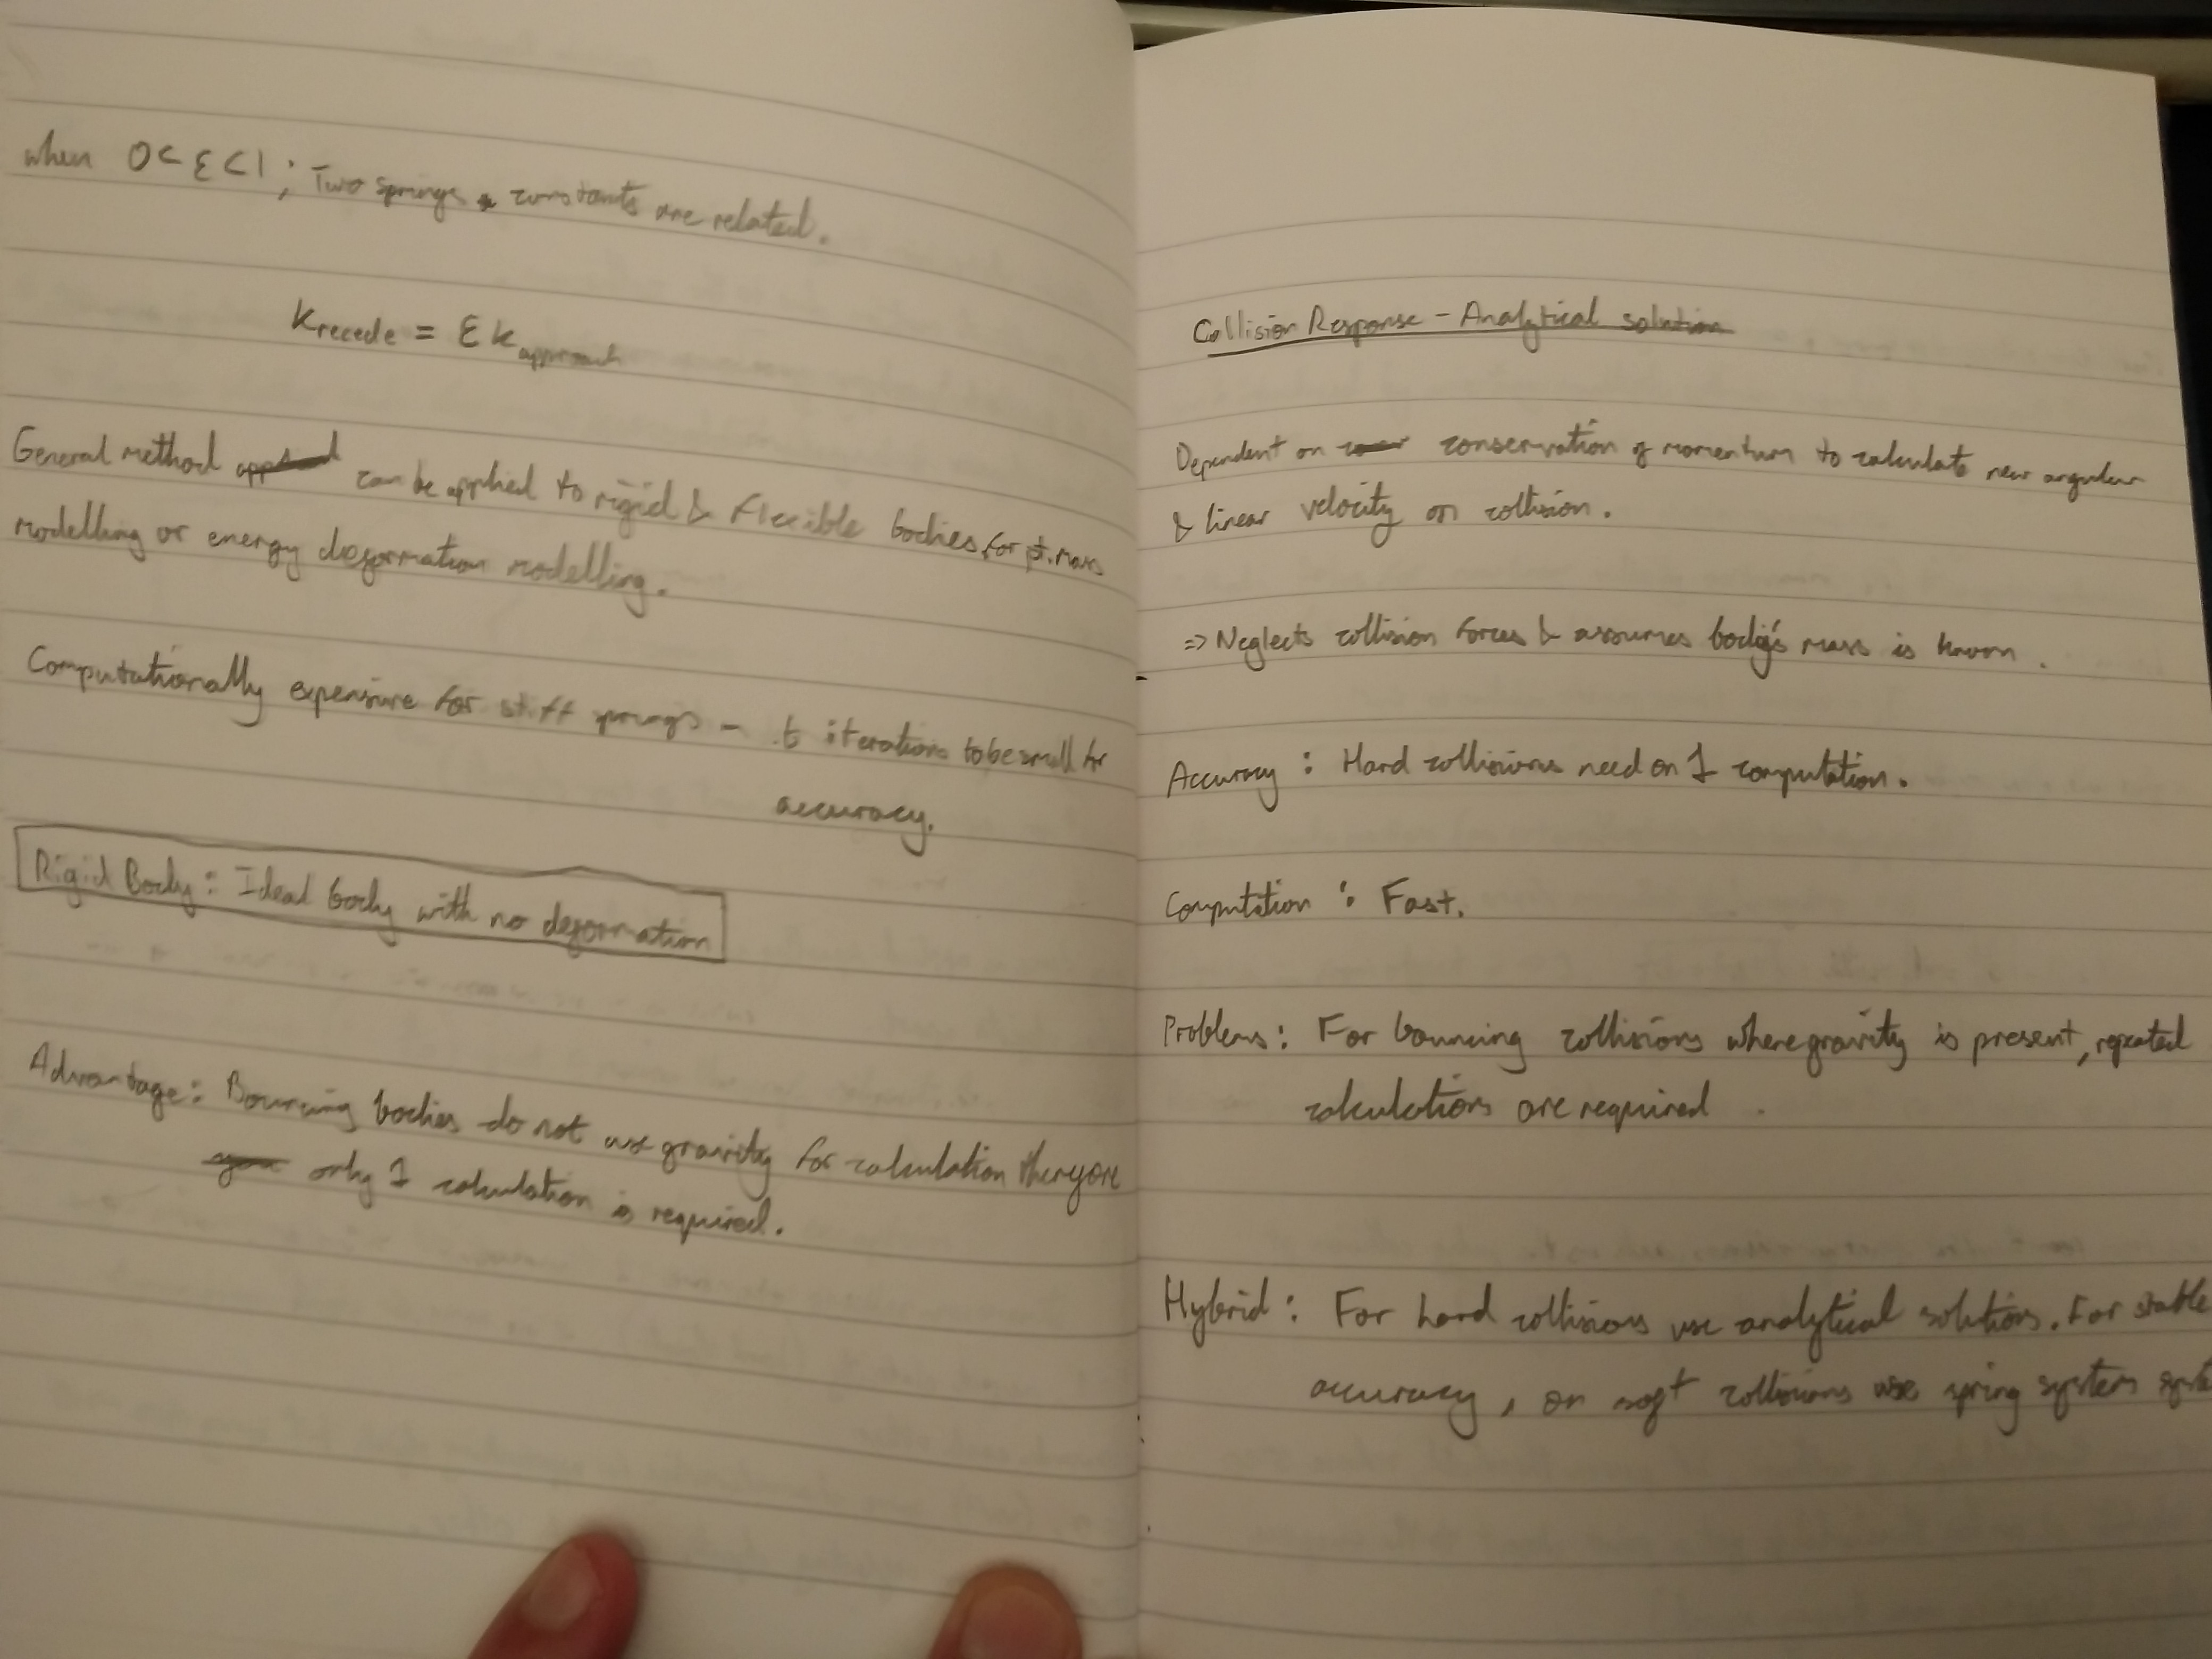 when 0 < ε < 1 ; Two springs constants are related.
Krecede = ε kapproach
General method can be applied to rigid & flexible bodies, for pt. mass
modelling or energy deformation modelling.
Computationally expensive for stiff springs - t iterations to be small for
accuracy.
Rigid Body : Ideal body with no deformation
Advantage : Bouncing bodies do not use gravity for calculation therefore
only 1 calculation is required.
Collision Response - Analytical solution
Dependent on conservation of momentum to calculate new angular
& linear velocity on collision.
=> Neglects collision forces & assumes body's mass is known.
Accuracy : Hard collisions need on 1 computation.
Computation : Fast.
Problems : For bouncing collisions where gravity is present, repeated
calculations are required
Hybrid : For hard collisions use analytical solutions. For stable
accuracy, on soft collisions use spring system